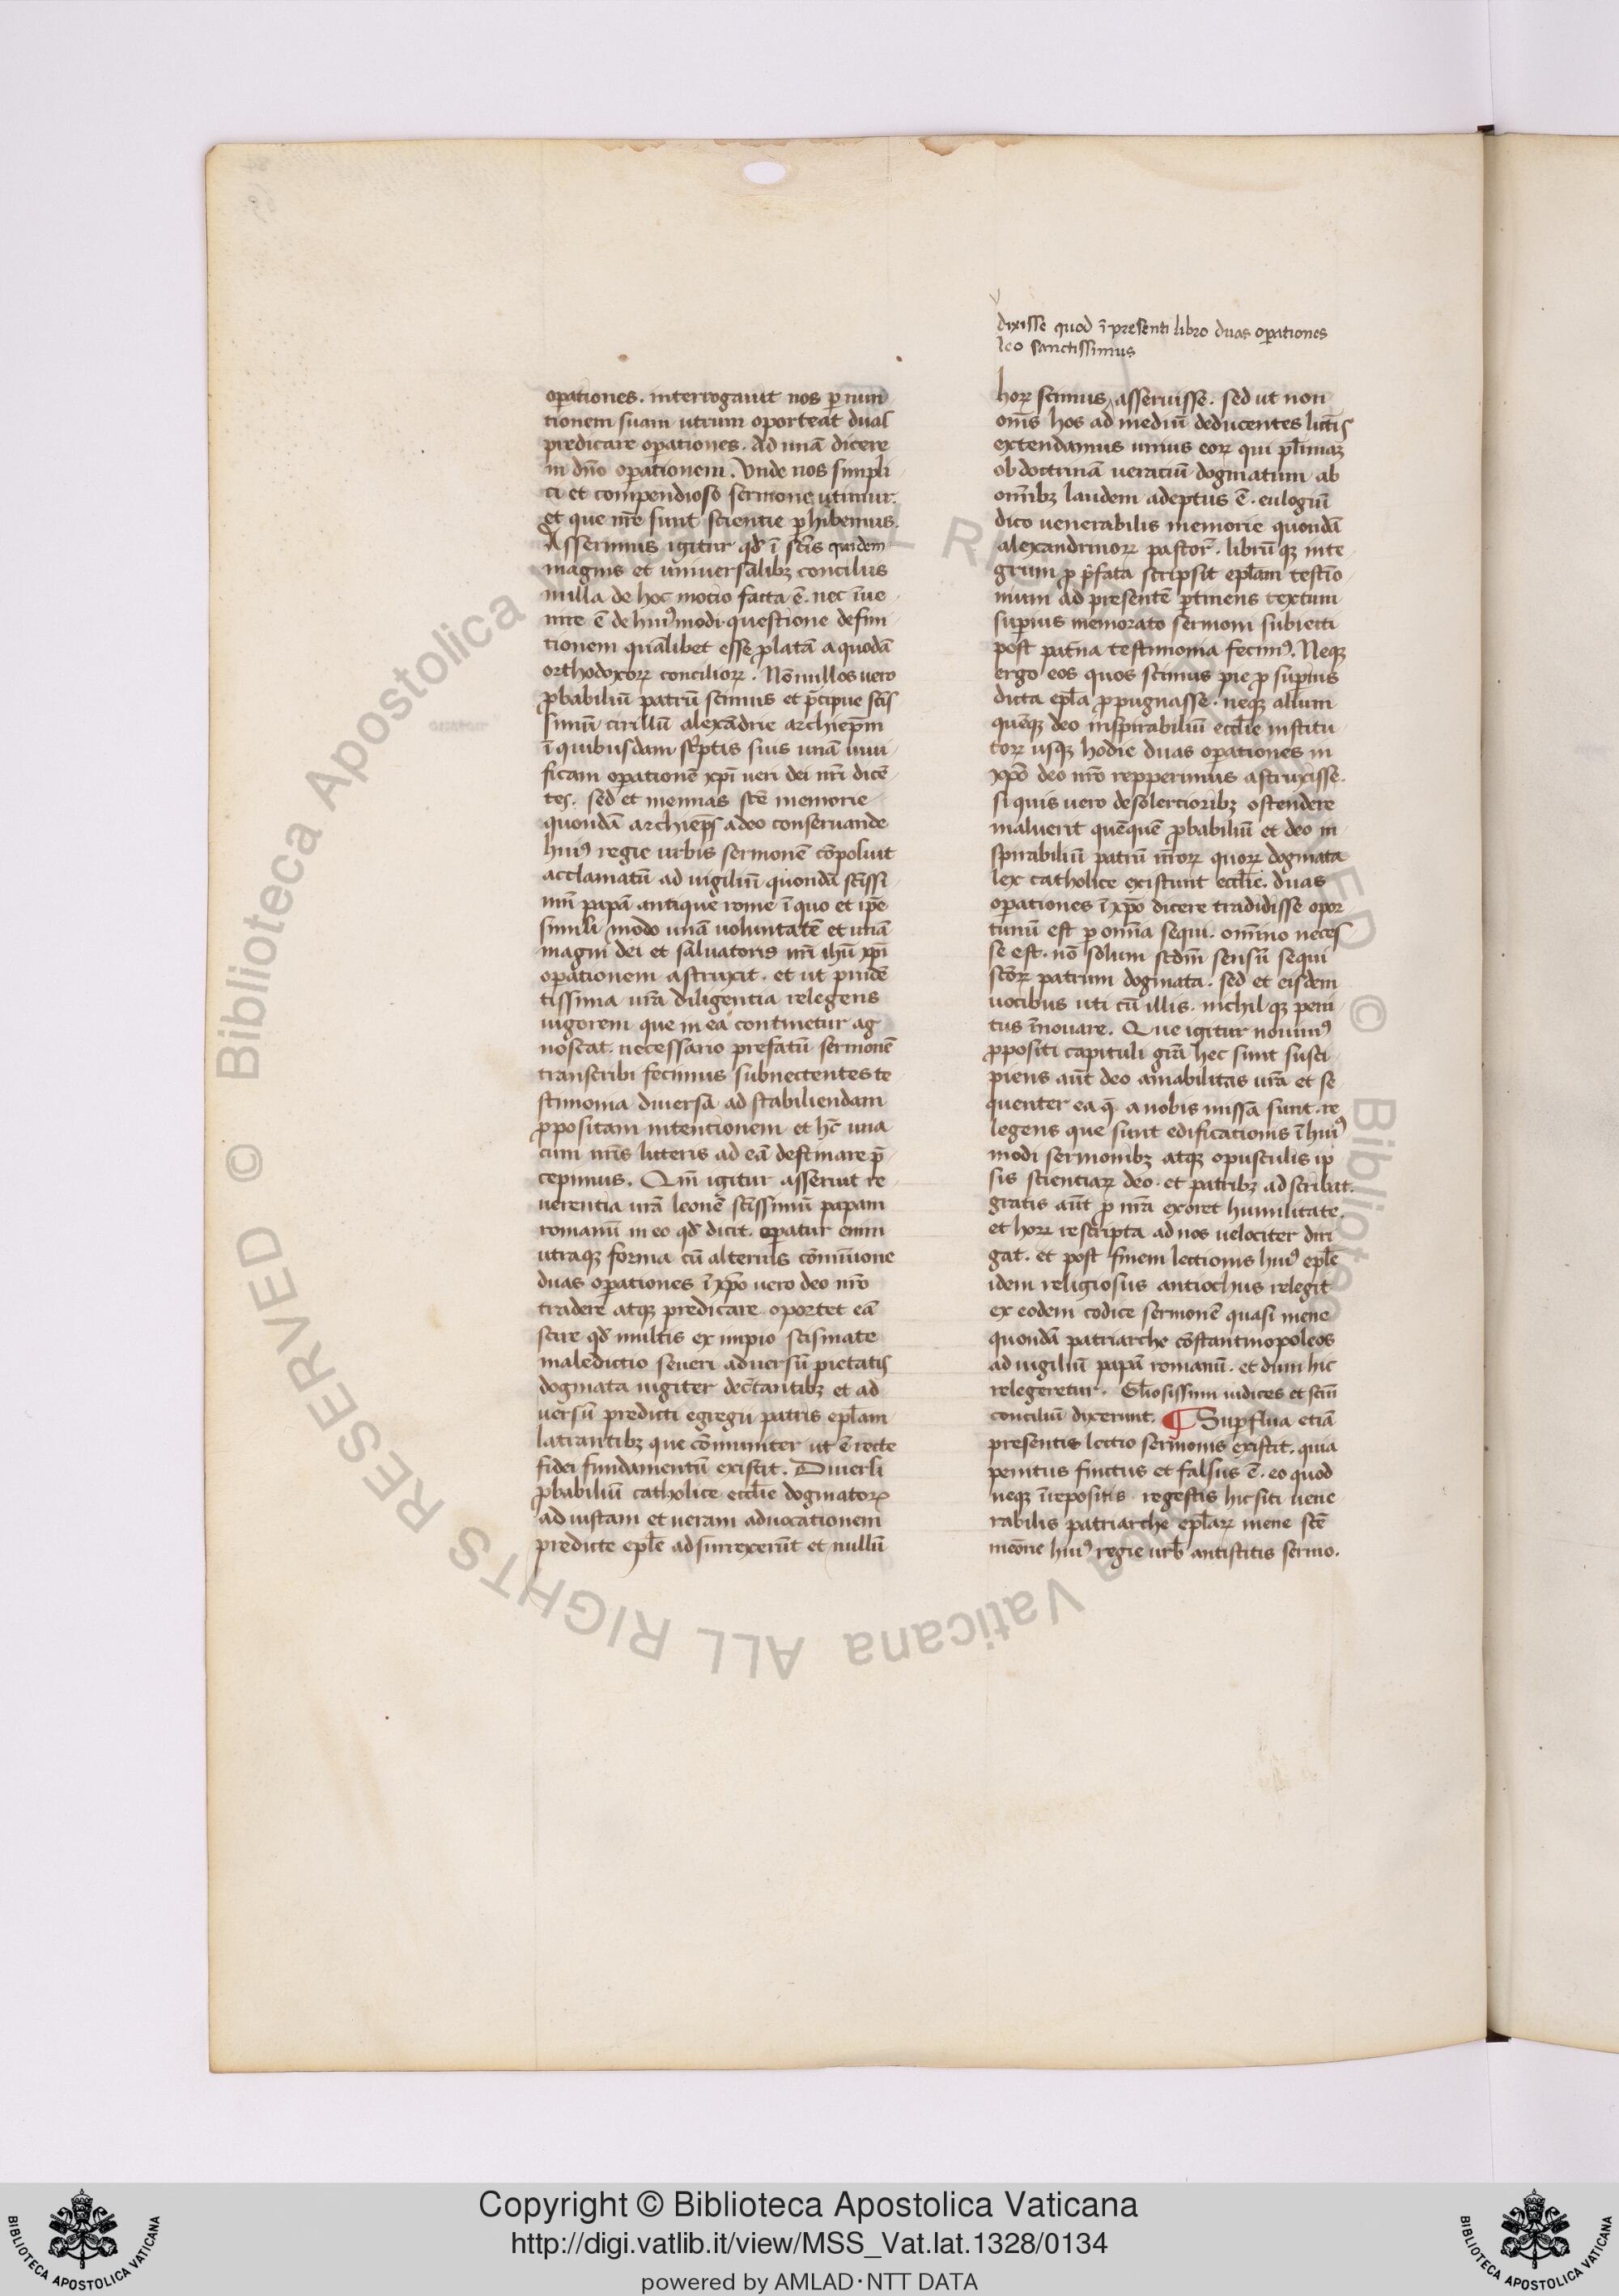 operationes. interrogauit nos ꝑ nun
tionem suam utrum oporteat duas
predicare operationes. ad unā dicere
in dn̄o oꝑationem. Vnde nos simpli
ci et compendioso sermone utimur.
et que nr̄e sunt scientie ꝑhibemus.
Asserimus igitur qd̄ ī scīs quidem
magnis et uniuersalibꝫ conciliis
nulla de hoc motio facta ē. nec īue
nire ē de huiꝰmodi questione defini
tionem quālibet esse ꝓlatā a quodā
orthodoxoꝝ concilioꝝ. Nōnullos uero
ꝓbabiliū patrū scimus et p̄cipue scīs
simū cirillū alexādrie archiep̄m
ī quibusdam sc̄ptis suis unā uiui
ficam oꝑationē xp̄i ueri dei nr̄i dicē
tes. sed et mennas scē memorie
quondā archiep̄s a deo conseruande
huiꝰ regie urbis sermonē cōposuit
acclamatū ad uigiliū quondā scīssi
mū papā antique rome ī quo et ip̄e
simili modo unā uoluntatē et unā
magni dei et saluatoris nr̄i ihū xp̄i
oꝑationem astruxit. et ut prudē
tissima ur̄a diligentia relegens
uigorem que in ea continetur ag
noscat. necessario prefatū sermonē
transcribi fecimus subnectentes te
stimonia diuersa ad stabiliendam
ꝓpositam intentionem et hc̄ una
cum nr̄is litteris ad eā destinare p̄
cepimus. Qm̄ igitur asseruit re
uerentia ur̄a leonē scīssimū papam
romanū in eo qd̄ dicit. oꝑatur enim
utraqꝫ forma cū alterius cōmunione
duas oꝑationes ī xp̄o uero deo nr̄o
tradere atqꝫ predicare. oportet eā
scire qd̄ multis ex impio scismate
maledictio seueri aduersū pietatis
dogmata iugiter dec̄tantibꝫ et ad
uersū predicti egregii patris ep̄lam
latrantibꝫ que cōmuniter ut ē recte
fidei fundamentū existit. Diuersi
ꝓbabiliū catholice eccl̄ie dogmatoꝝ
ad iustam et ueram aduocationem
predicte ep̄le adsurrexerūt et nullū
dixisse quod ī presenti libro duas oꝑationes
leo sanctissimus
hoꝝ scimus asseruisse. sed ut non
om̄s hos ad mediū deducentes luctis
extendamus unius eoꝝ qui pl̄imaꝫ
ob doctrinā ueraciū dogmatum ab
omībꝫ laudem adeptus ē. eulogiū
dico uenerabilis memorie quondā
alexandrinoꝝ pastor̄. librū qꝫ inte
grum ꝓ p̄fata scripsit ep̄lam testīo
nium ad presentē ꝑtinens textum
suꝑius memorato sermoni subiecti
post patn̄a testimonia fecimꝰ. Neqꝫ
ergo eos quos scimus pie ꝓ suꝑius
dicta ep̄la ꝓpugnasse. neqꝫ alium
quēqꝫ deo inspirabiliū eccl̄ie institu
toꝝ usqꝫ hodie duas oꝑationes in
xp̄o deo nr̄o repperimus astruxisse.
si quis uero de solertioribꝫ ostendere
maluerit quēquē ꝓbabiliū et deo in
spirabiliū patrū nr̄oꝝ quoꝝ dogmata
lex catholice existunt eccl̄ie. duas
oꝑationes ī xp̄o dicere tradidisse opor
tunū est ꝑ omīa sequi. omīno neces
se est. nō solum scdm̄ sensū sequi
scōꝝ patrum dogmata. sed et eisdem
uocibus uti cū illis. nichil qꝫ peni
tus īnouare. Que igitur nouimꝰ
ꝓpositi capituli gr̄a hec sunt susci
piens aūt deo amabilitas ur̄a et se
quenter ea q̄ a nobis missa sunt. re
legens que sunt edificationis ī huiꝰ
modi sermonibꝫ atqꝫ opusculis ip
sis scientiaꝝ deo. et patribꝫ adscribat.
gratis aūt ꝓ nr̄a exoret humilitate.
et hoꝝ rescripta ad nos uelociter diri
gat. et post finem lectionis huiꝰ ep̄le
idem religiosus antiochus relegit
ex eodem codice sermonē quasi mene
quondā patriarche cōstantinopoleos
ad uigiliū papā romanū. et dum hic
relegeretur. Gl̄iosissimi iudices et scm̄
conciliū dixerunt. ¶ Suꝑflua etiā
presentis lectio sermonis existit. quia
penitus finctus et falsus ē. eo quod
neqꝫ ī repositis regestis hic siti uene
rabilis patriarche ep̄laꝝ mene scē
meōrie huiꝰ regie urb̄ antistitis sermo.
Copyright © Biblioteca Apostolica Vaticana
http://digi.vatlib.it/view/MSS_Vat.lat.1328/0134
powered by AMLAD·NTT DATA
© Biblioteca Apostolica Vaticana ALL RIGHTS RESERVED
BIBLIOTECA APOSTOLICA VATICANA
BIBLIOTECA APOSTOLICA VATICANA